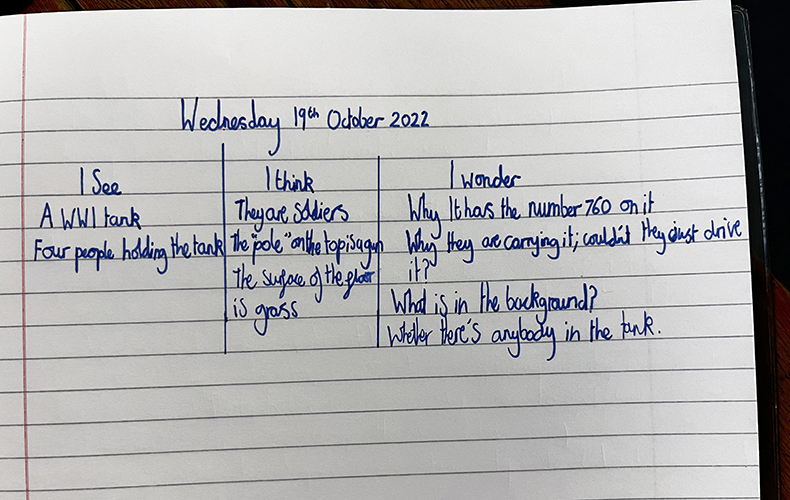 Wednesday 19th October 2022
I See
A WW1 tank
Four people holding the tank
I think
They are Soldiers
The "pole" on the top is a gun
The surface of the floor
is grass
I wonder
Why It has the number 760 on it
Why they are carrying it; couldn't they just drive
it?
What is in the background?
Whether there's anybody in the tank.